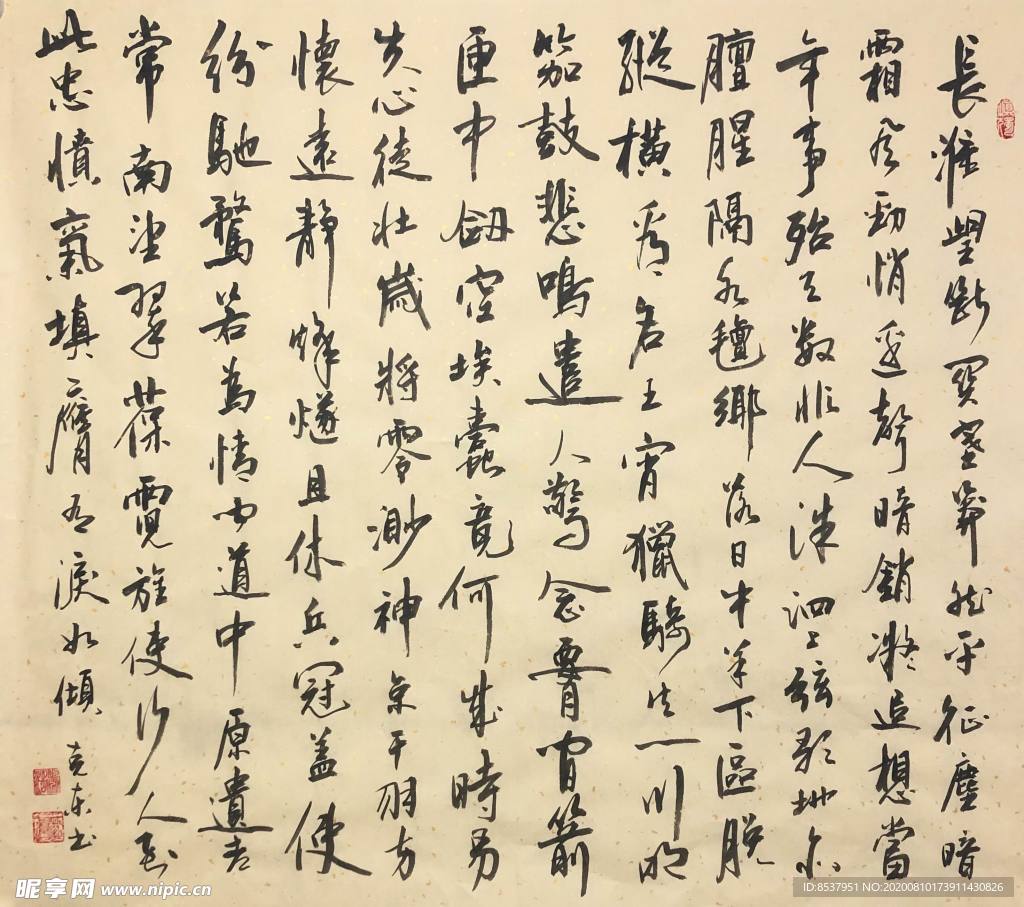 長淮望斷關塞莽然平征塵暗
霜風勁悄邊聲暗銷凝追想當
年事殆天數非人洙泗上弦歌地亦
膻腥隔水氈鄉落日牛羊下區脫
縱橫看名王宵獵騎火一川明
笳鼓悲鳴遣人驚念腰間箭
匣中劍空埃蠹竟何成時易
失心徒壯歲將零渺神京干羽方
懷遠靜烽燧且休兵冠蓋使
紛馳騖若為情聞道中原遺老
常南望翠葆霓旌使行人到
此忠憤氣填膺有淚如傾
克東書
昵享网 www.nipic.cn
ID:8537951 NO:20200810173911430826